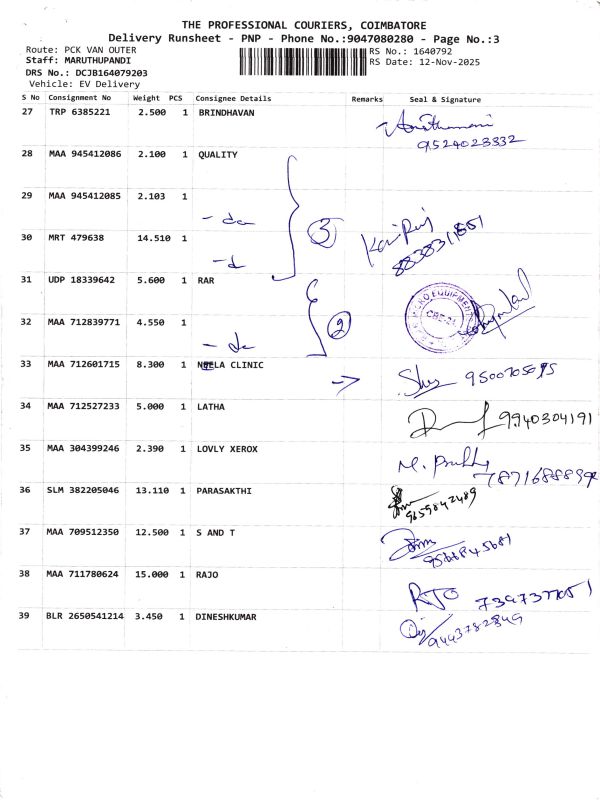 THE PROFESSIONAL COURIERS, COIMBATORE
Delivery Runsheet - PNP - Phone No.:9047080280 - Page No.:3
Route: PCK VAN OUTER
RS No.: 1640792
Staff: MARUTHUPANDI
RS Date: 12-Nov-2025
DRS No.: DCJB164079203
Vehicle: EV Delivery
S No Consignment No Weight PCS Consignee Details Remarks Seal & Signature
27 TRP 6385221 2.500 1 BRINDHAVAN
9524023332
28 MAA 945412086 2.100 1 QUALITY
29 MAA 945412085 2.103 1
- do
3
30 MRT 479638 14.510 1
- d
31 UDP 18339642 5.600 1 RAR
32 MAA 712839771 4.550 1
- do
2
33 MAA 712601715 8.300 1 NEELA CLINIC
34 MAA 712527233 5.000 1 LATHA
9940304191
35 MAA 304399246 2.390 1 LOVLY XEROX
36 SLM 382205046 13.110 1 PARASAKTHI
9659842489
37 MAA 709512350 12.500 1 S AND T
9566845681
38 MAA 711780624 15.000 1 RAJO
RJO
39 BLR 2650541214 3.450 1 DINESHKUMAR
9443782849